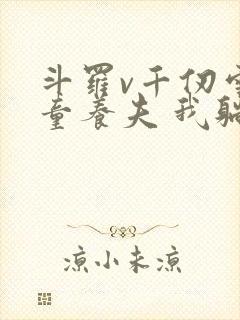 斗罗v千仞雪
童养夫我躺
凉小未凉